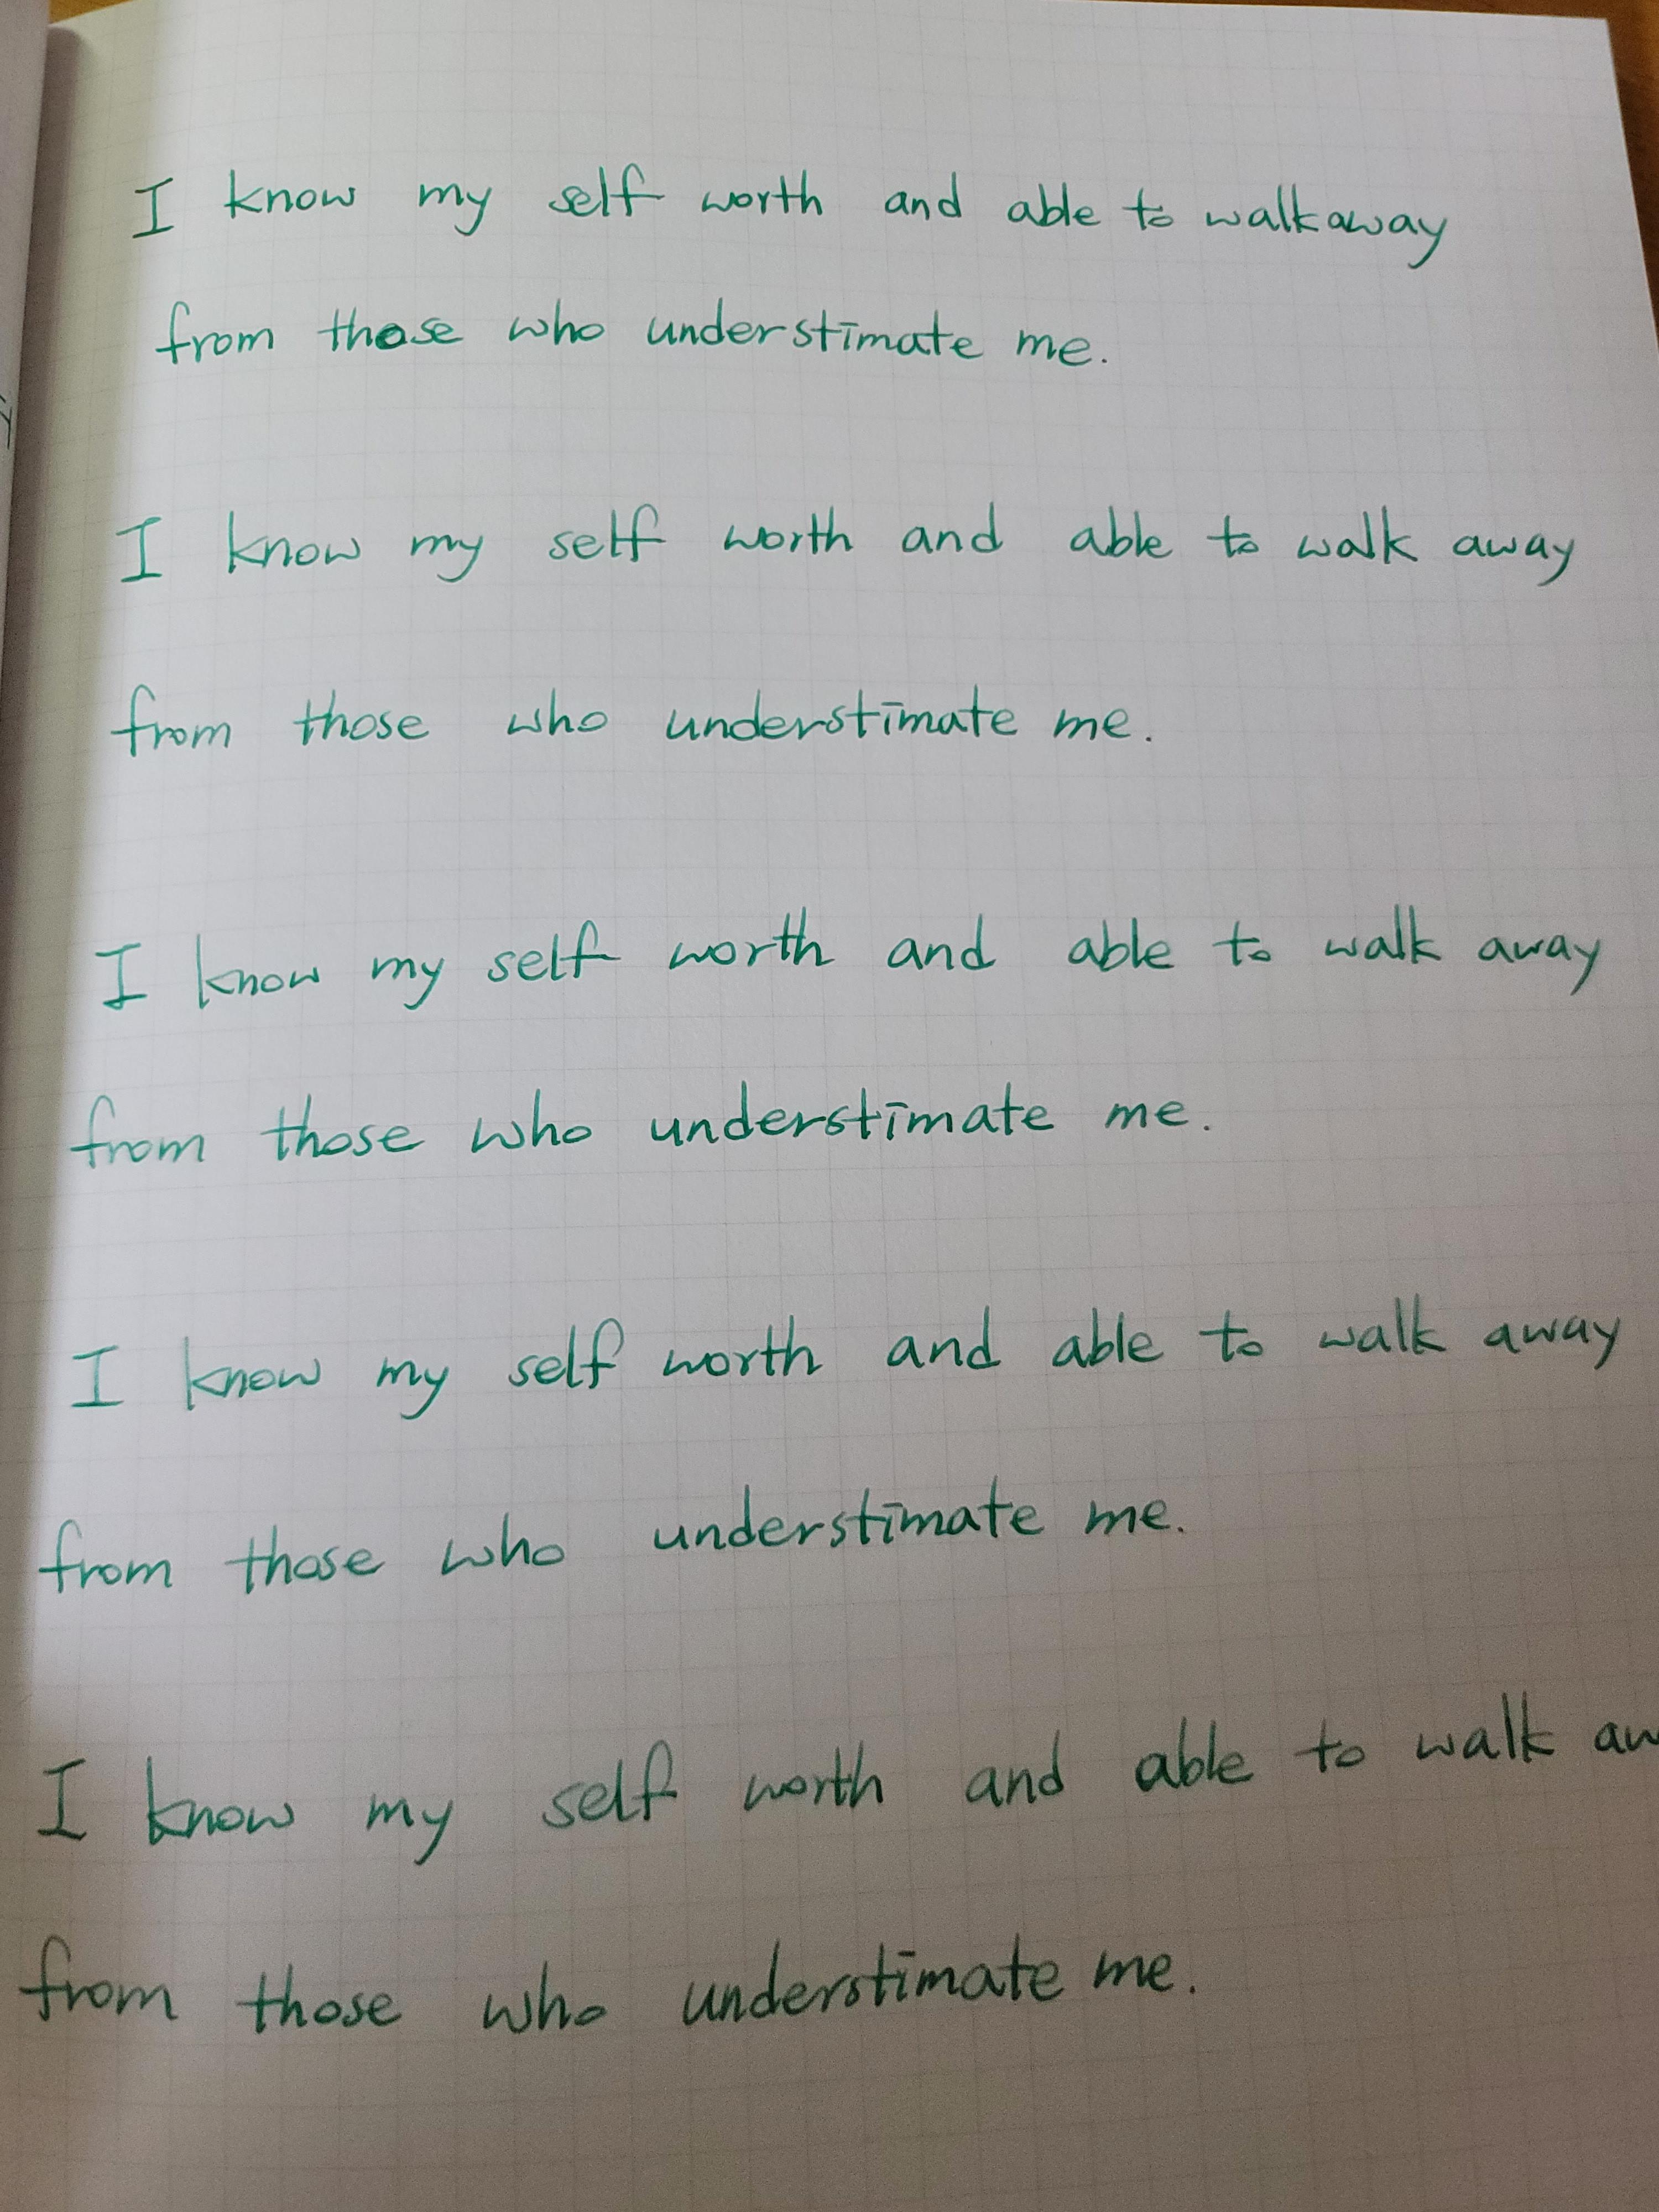 I know my self worth and able to walk away
from those who understimate me.
I know my self worth and able to walk away
from those who understimate me.
I know my self worth and able to walk away
from those who understimate me.
I know my self worth and able to walk away
from those who understimate me.
I know my self worth and able to walk aw
from those who understimate me.